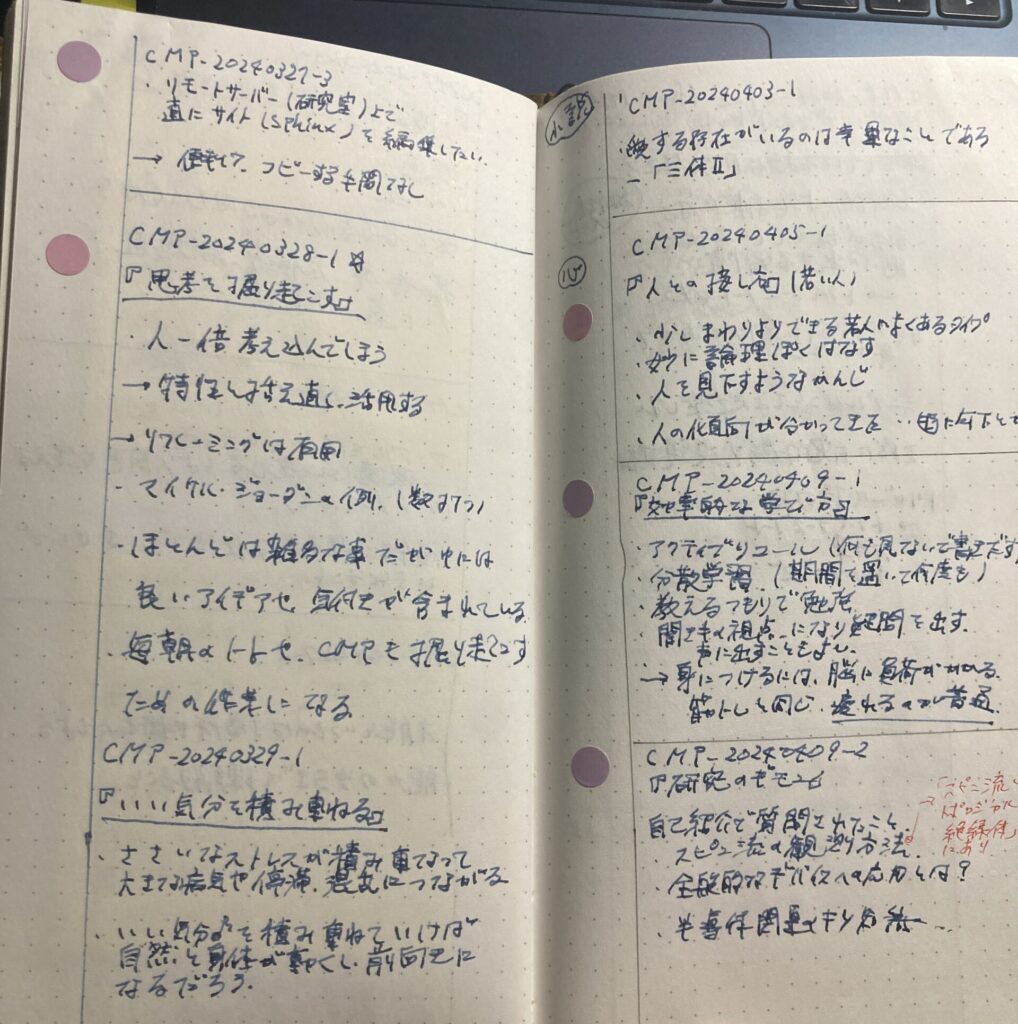 CMP-20240327-3
・リモートサーバー(研究室)上で
直にサイト(Sphinx)を編集したい.
→ 便利?. コピーする手間なし
CMP-20240328-1 ☆
『思考を掘り起こす』
・人一倍考え込んでしまう
→ 特性と捉え直し、活用する
→ リフレーミングは有用
・マイケル・ジョーダンの例. (数打つ)
・ほとんどは雑多な事だが中には
良いアイデアや、気付きが含まれている.
・毎朝のノートや、CMPも掘り起こす
ための作業になる
CMP-20240329-1
『いい気分を積み重ねる』
・ささいなストレスが積み重なって
大きな病気や停滞、混乱につながる
・いい気分を積み重ねていけば
自然と身体が動くし、前向きに
なるだろう.
小説
CMP-20240403-1
・する存在がいるのは幸運なことである
-「三体Ⅱ」
CMP-20240405-1
心
『人との接し方』(若い人)
・少しまわりよりできる若人によくあるタイプ
・妙に論理ぽくはなす
・人を見下すようなかんじ
・人の傾向が分かってきた
CMP-20240409-1
『効率的な学び方』
・アクティブリコール (何も見ないで書きだす
・分散学習. (期間を置いて何度も)
・教えるつもりで勉強
聞き手の視点になり疑問を出す.
声に出すこともよし.
→ 身につけるには、脳に負荷がかかる.
筋トレと同じ. 疲れるのが普通.
CMP-20240409-2
『研究のギモン』
自己紹介で質問されたこと
・スピン流の観測方法.
「スピン流
→ 絶縁体
にあり
・全般的なデバイスへの応用とは?
・半導体関連